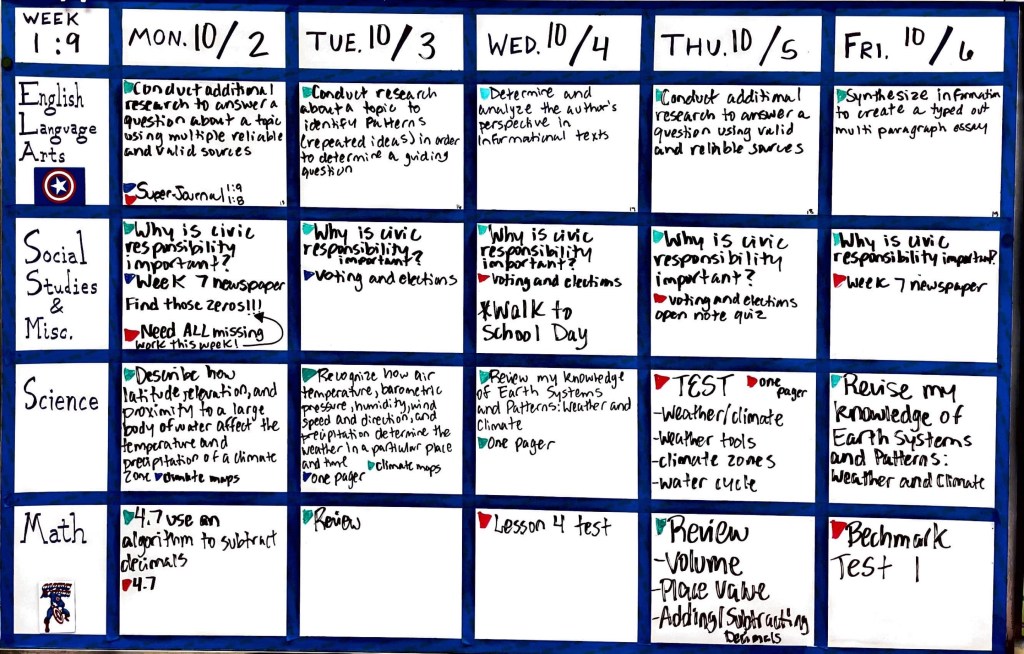 WEEK
1:9
MON. 10/2
TUE. 10/3
WED. 10/4
THU. 10/5
FRI. 10/6
English
Language
Arts
Conduct additional
research to answer a
question about a topic
using multiple reliable
and valid sources
Super-Journal 1:9
1:8
Conduct research
about a topic to
identify Patterns
(repeated ideas) in order
to determine a guiding
question
Determine and
analyze the author's
perspective in
informational texts
Conduct additional
research to answer a
question using valid
and reliable sources
Synthesize information
to create a typed out
multi paragraph essay
Social
Studies
&
Misc.
Why is civic
responsibility
important?
Week 7 newspaper
Find those zeros!!!
Need ALL missing
work this week!
Why is civic
responsibility
important?
voting and elections
Why is civic
responsibility
important?
voting and elections
*Walk to
School Day
Why is civic
responsibility
important?
voting and elections
open note quiz
Why is civic
responsibility important?
Week 7 newspaper
Science
Describe how
latitude, elevation, and
proximity to a large
body of water affect the
temperature and
precipitation of a climate
zone climate maps
Recognize how air
temperature, barometric
pressure, humidity, wind
speed and direction, and
precipitation determine the
weather in a particular place
and time climate maps
one pager
Review my knowledge
of Earth Systems
and Patterns: Weather and
Climate
One pager
TEST one
pager
-Weather/climate
-Weather tools
-climate zones
-water cycle
Revise my
knowledge of
Earth Systems
and Patterns:
Weather and Climate
Math
4.7 use an
algorithm to subtract
decimals
4.7
Review
Lesson 4 test
Review
-Volume
-Place Value
-Adding/Subtracting
Decimals
Bechmark
Test 1